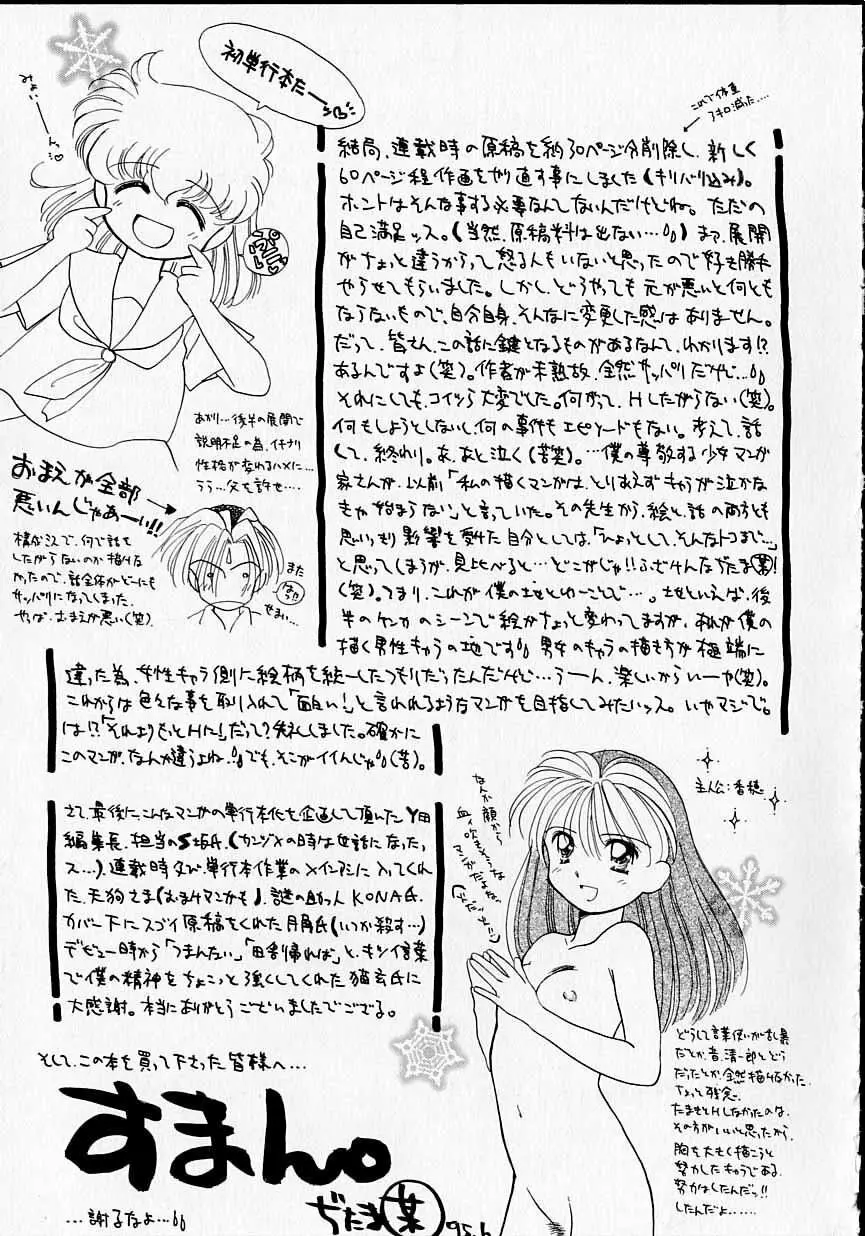 初単行本だー
みょい
ーんっ
これで体重
7キロ減った....
結局、連載時の原稿を約30ページ分削除し、新しく
60ページ程作画をやり直す事にしました(キリバリ込み)。
ホントはそんな事する必要なんてないんだけどね。ただの
自己満足ッス。(当然、原稿料は出ない…)まァ、展開
がちょっと違うからって怒る人もいないと思ったので好き勝手
やらせてもらいました。しかし、どうやっても元が悪いと何とも
ならないもので、自分自身、そんなに変更した感はありません。
だって、皆さん、この話に鍵となるものがあるなんて、わかります!?
あるんですよ(笑)。作者が未熟故、全然サッパリだけど…
それにしても、コイツら大変でした。何がって、Hしたがらない(笑)。
何もしようとしないし、何の事件もエピソードもない。考えて、話
して、終わり。あ、あと泣く(苦笑)。…僕の尊敬する少女マンガ
家さんが、以前「私の描くマンガは、とりあえずキャラが泣かな
きゃ始まらない」と言っていた。その先生から、絵と話のあちこち
思いっきり影響を受けた自分としては、「ひょっとして、そんなトコまで…」
と思ってしまうが、見比べると…どこがじゃ!!ふざけんなぢたま(某)!
(笑)。つまり、これが僕の地とゆーことで…。地といえば、後
半のケンカのシーンで絵がちょっと変わってますが、あれが僕の
描く男性キャラの地です 男女のキャラの描き方が極端に
違った為、女性キャラ側に絵柄を統一したつもりだったんだけど…うーん、楽しいからいーや(笑)。
これからは色々な事を取り入れて「面白い!」と言われるようなマンガを目指してみたいッス。いやマジで。
は!?「それよりもっとHに!」だって?失礼しました。確かに
このマンガ、なんか違うよね でも、そこがイイんじゃ(苦)。
あかり…後半の展開で
説明不足の為、イキナリ
性格が変わるハメに…
うう…父を許せ……
おまえが全部
悪いんじゃあーい!!
構成ミスで、何で話を
したがらないのか描けな
かったので、話全体がどーにも
サッパリになってしまった。
やっぱ、おまえが悪い(笑)
また
せまい…
さて、最後に、こんなマンガの単行本化を企画して頂いたY田
編集長、担当のS坂氏、(カンヅメの時は世話になったッ
ス…)、連載時及び、単行本作業のメインアシに入ってくれ
た、天狗さま(おまけマンガも)、謎の助っ人KONA氏、
カバー下にスゴイ原稿をくれた月角氏(いつか殺す…)
デビュー時から「つまんない」「田舎帰れば」と、キツイ言葉
で僕の精神をちょこっと強くしてくれた猫玄氏に
大感謝。本当にありがとうございましたでござる。
主人公:香穂
なんか顔から
血ィ吹きそうな
マンガだよねが
どうして言葉使いが乱暴
だとか、昔、清一郎とどう
だったとか、全然描けなかった。
ちょっと残念。
たまきとHしなかったのは、
その方がいいと思ったから。
胸を大きく描こうと
努力したキャラである。
努力はしたんだッ!!
したんだよ……
そして、この本を買って下さった皆様へ…
すまん。
…謝るなよ…
ぢたま(某)
95.6